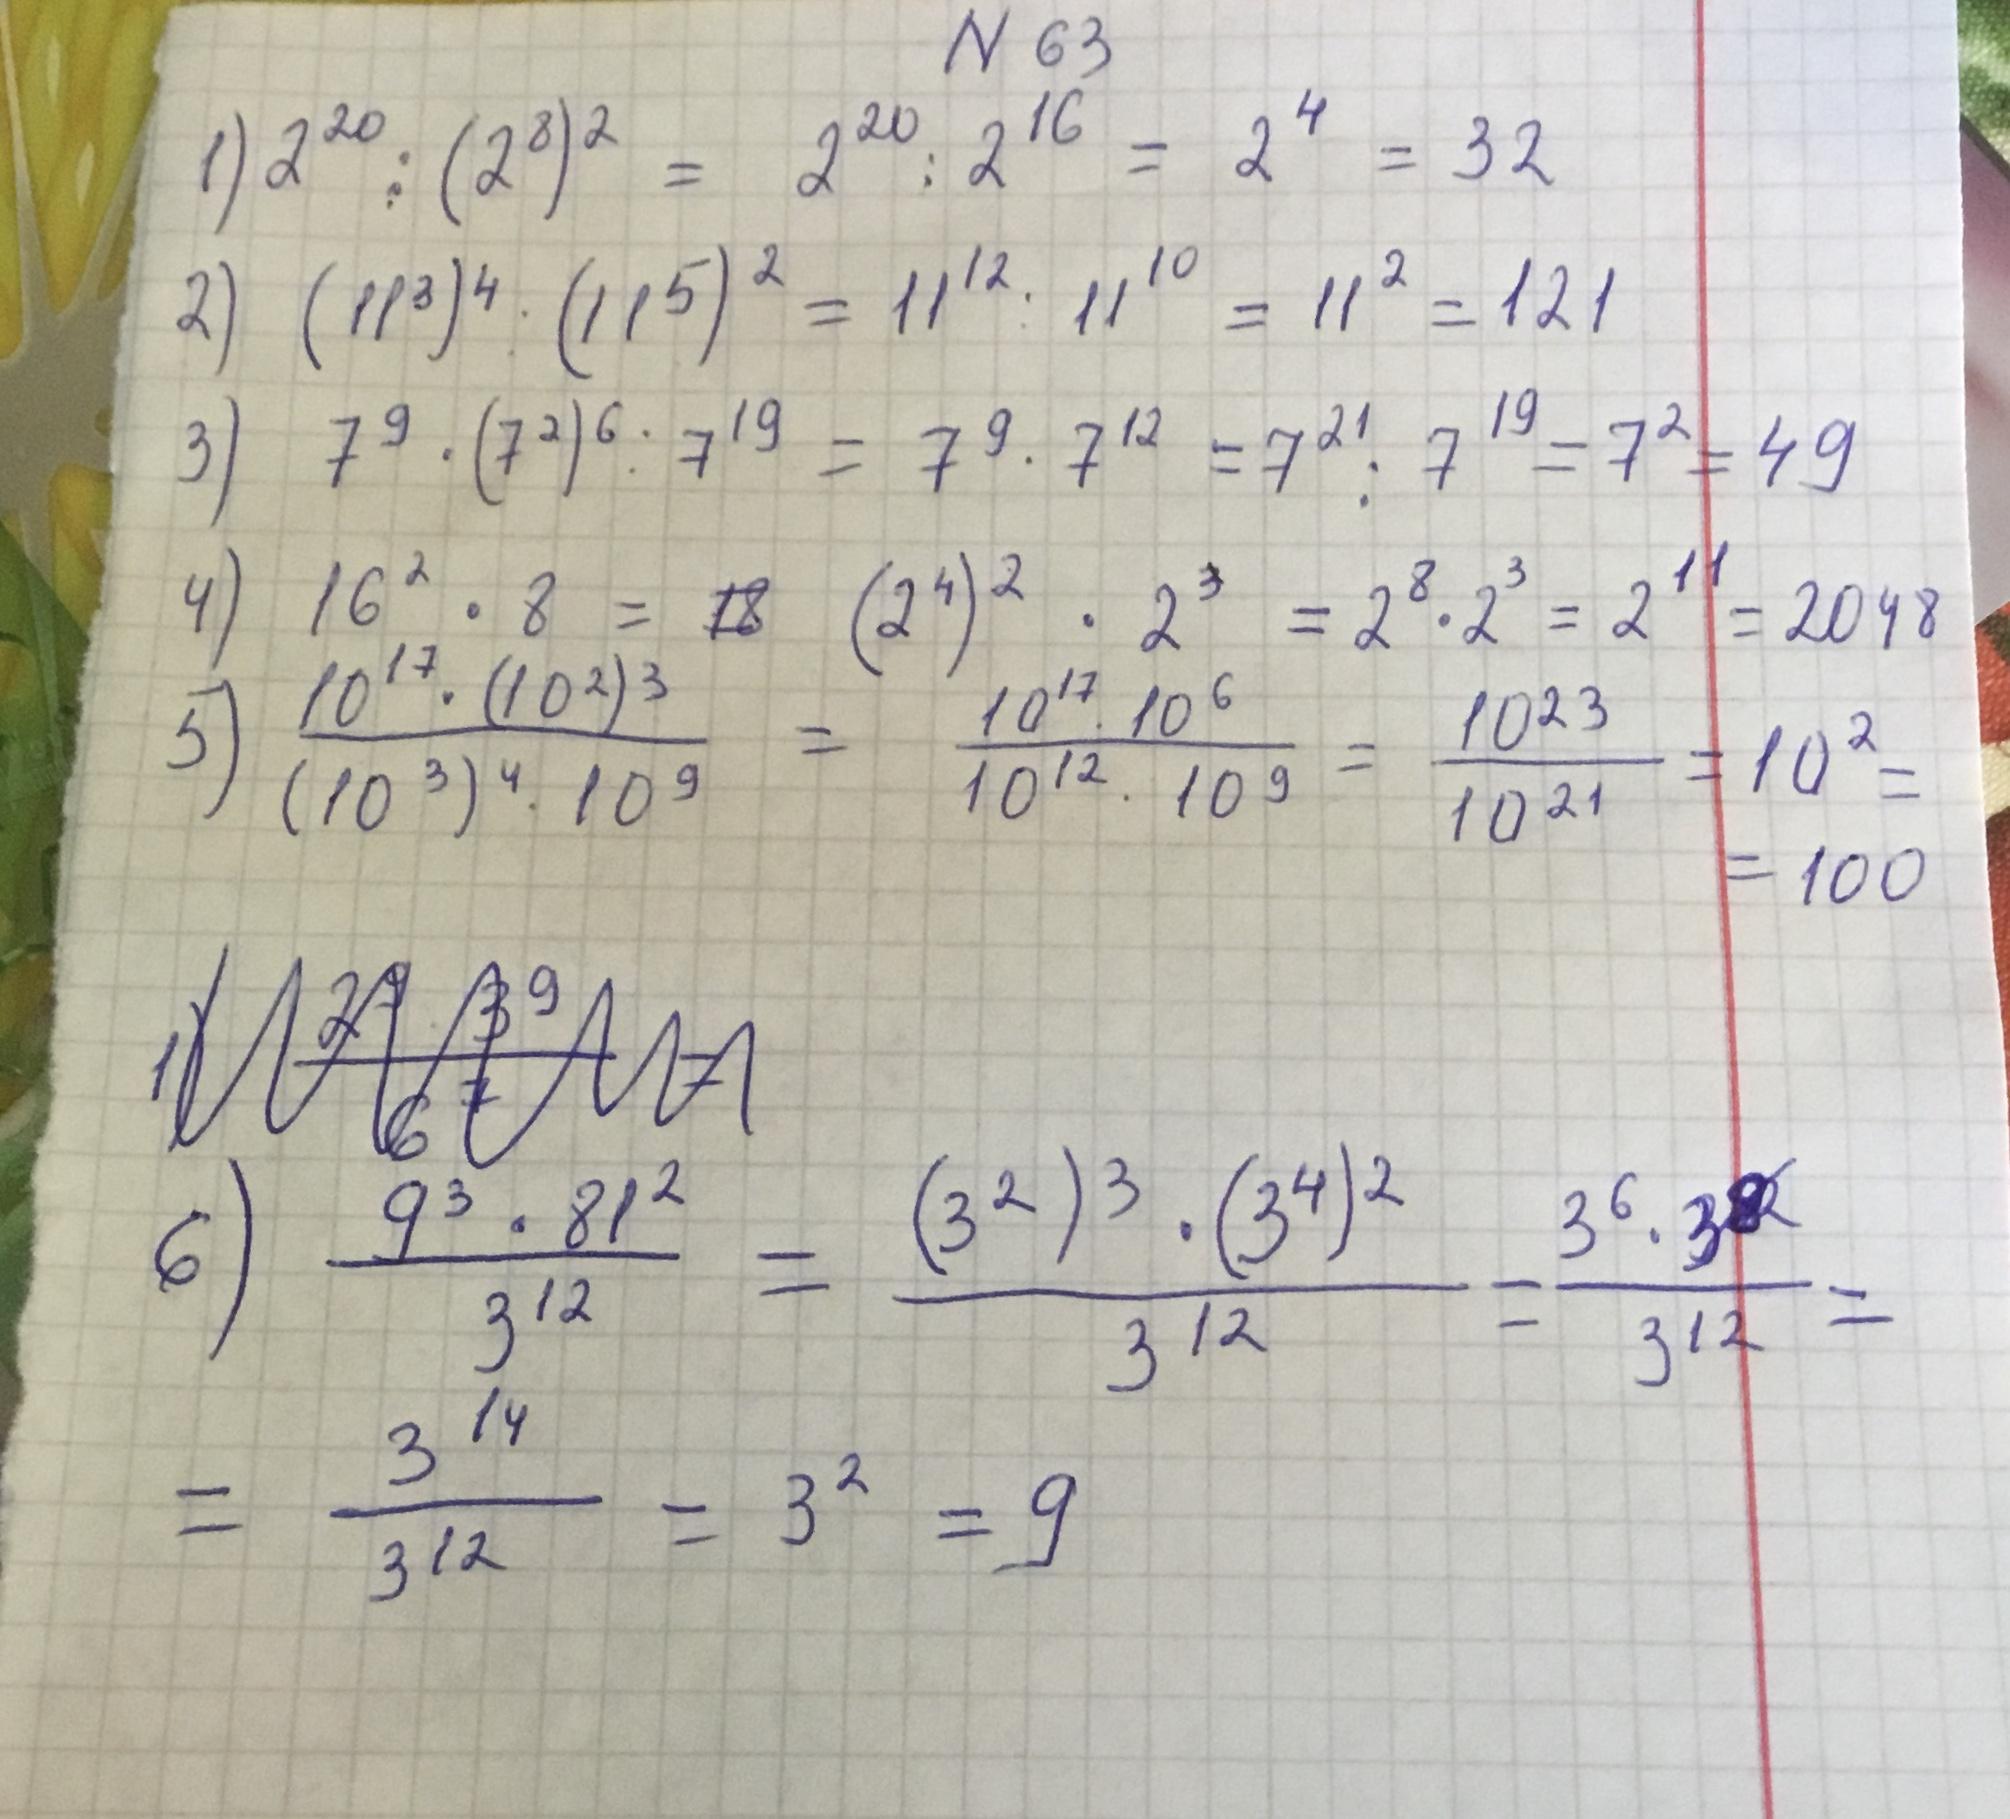 N 63
1) 2^20 : (2^8)^2 = 2^20 : 2^16 = 2^4 = 32
2) (11^3)^4 · (11^5)^2 = 11^12 : 11^10 = 11^2 = 121
3) 7^9 · (7^2)^6 : 7^19 = 7^9 · 7^12 = 7^21 : 7^19 = 7^2 = 49
4) 16^2 · 8 = (2^4)^2 · 2^3 = 2^8 · 2^3 = 2^11 = 2048
5) (10^17 · (10^2)^3) / ((10^3)^4 · 10^9) = (10^17 · 10^6) / (10^12 · 10^9) = 10^23 / 10^21 = 10^2 =
= 100
6) (9^3 · 81^2) / 3^12 = ((3^2)^3 · (3^4)^2) / 3^12 = (3^6 · 3^8) / 3^12 =
= 3^14 / 3^12 = 3^2 = 9